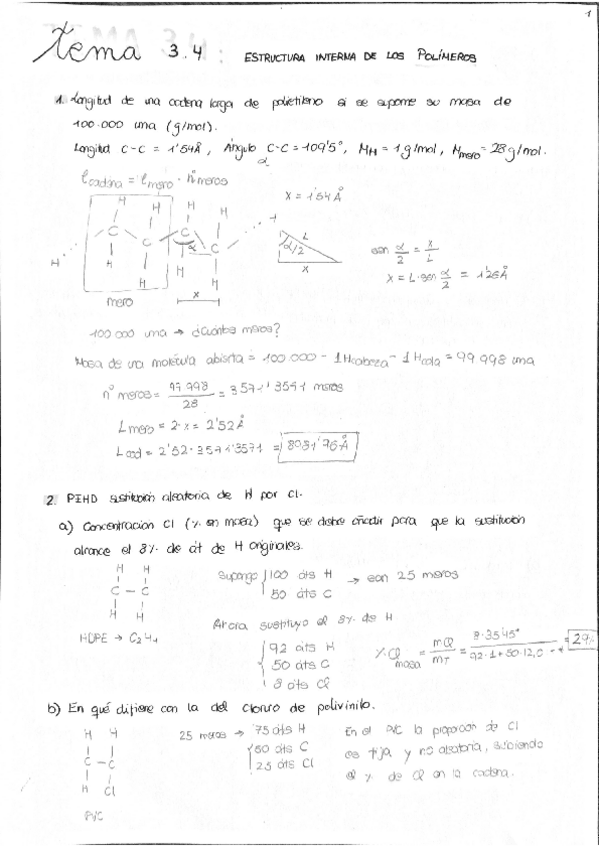 1
Tema 3.4 ESTRUCTURA INTERNA DE LOS POLÍMEROS
1. Longitud de una cadena larga de polietileno si se supone su masa de
100.000 uma (g/mol).
Longitud C-C = 1'54Å, Ángulo C-C = 109'5°, M_H = 1 g/mol, M_mero = 28 g/mol.
α
l_cadena = l_mero · nº meros
x = 1'54 Å
H H H H
C C C C
α
H H H H H
mero
x
L
α/2
x
sen α/2 = x/L
x = L·sen α/2 = 1'26Å
100.000 uma → ¿Cuántos meros?
Masa de una molécula abierta = 100.000 - 1H_cabeza - 1H_cola = 99.998 uma
nº meros = 99.998/28 = 3571'3571 meros
L_mero = 2·x = 2'52Å
L_cad = 2'52·3571'3571 =
2. PEHD sustitución aleatoria de H por Cl.
a) Concentración Cl (% en masa) que se debe añadir para que la sustitución
alcance el 8% de át de H originales.
H H
C - C
H H
HDPE → C2H4
Supongo 100 áts H → son 25 meros
50 áts C
Ahora sustituyo el 8% de H
92 áts H
50 áts C
8 áts Cl
% Cl masa = mCl/mT =
b) En qué difiere con la del cloruro de polivinilo.
H H
C - C
H Cl
PVC
25 meros → 75 áts H
50 áts C
25 áts Cl
En el PVC la proporción de Cl
es fija y no aleatoria, subiendo
el % de Cl en la cadena.